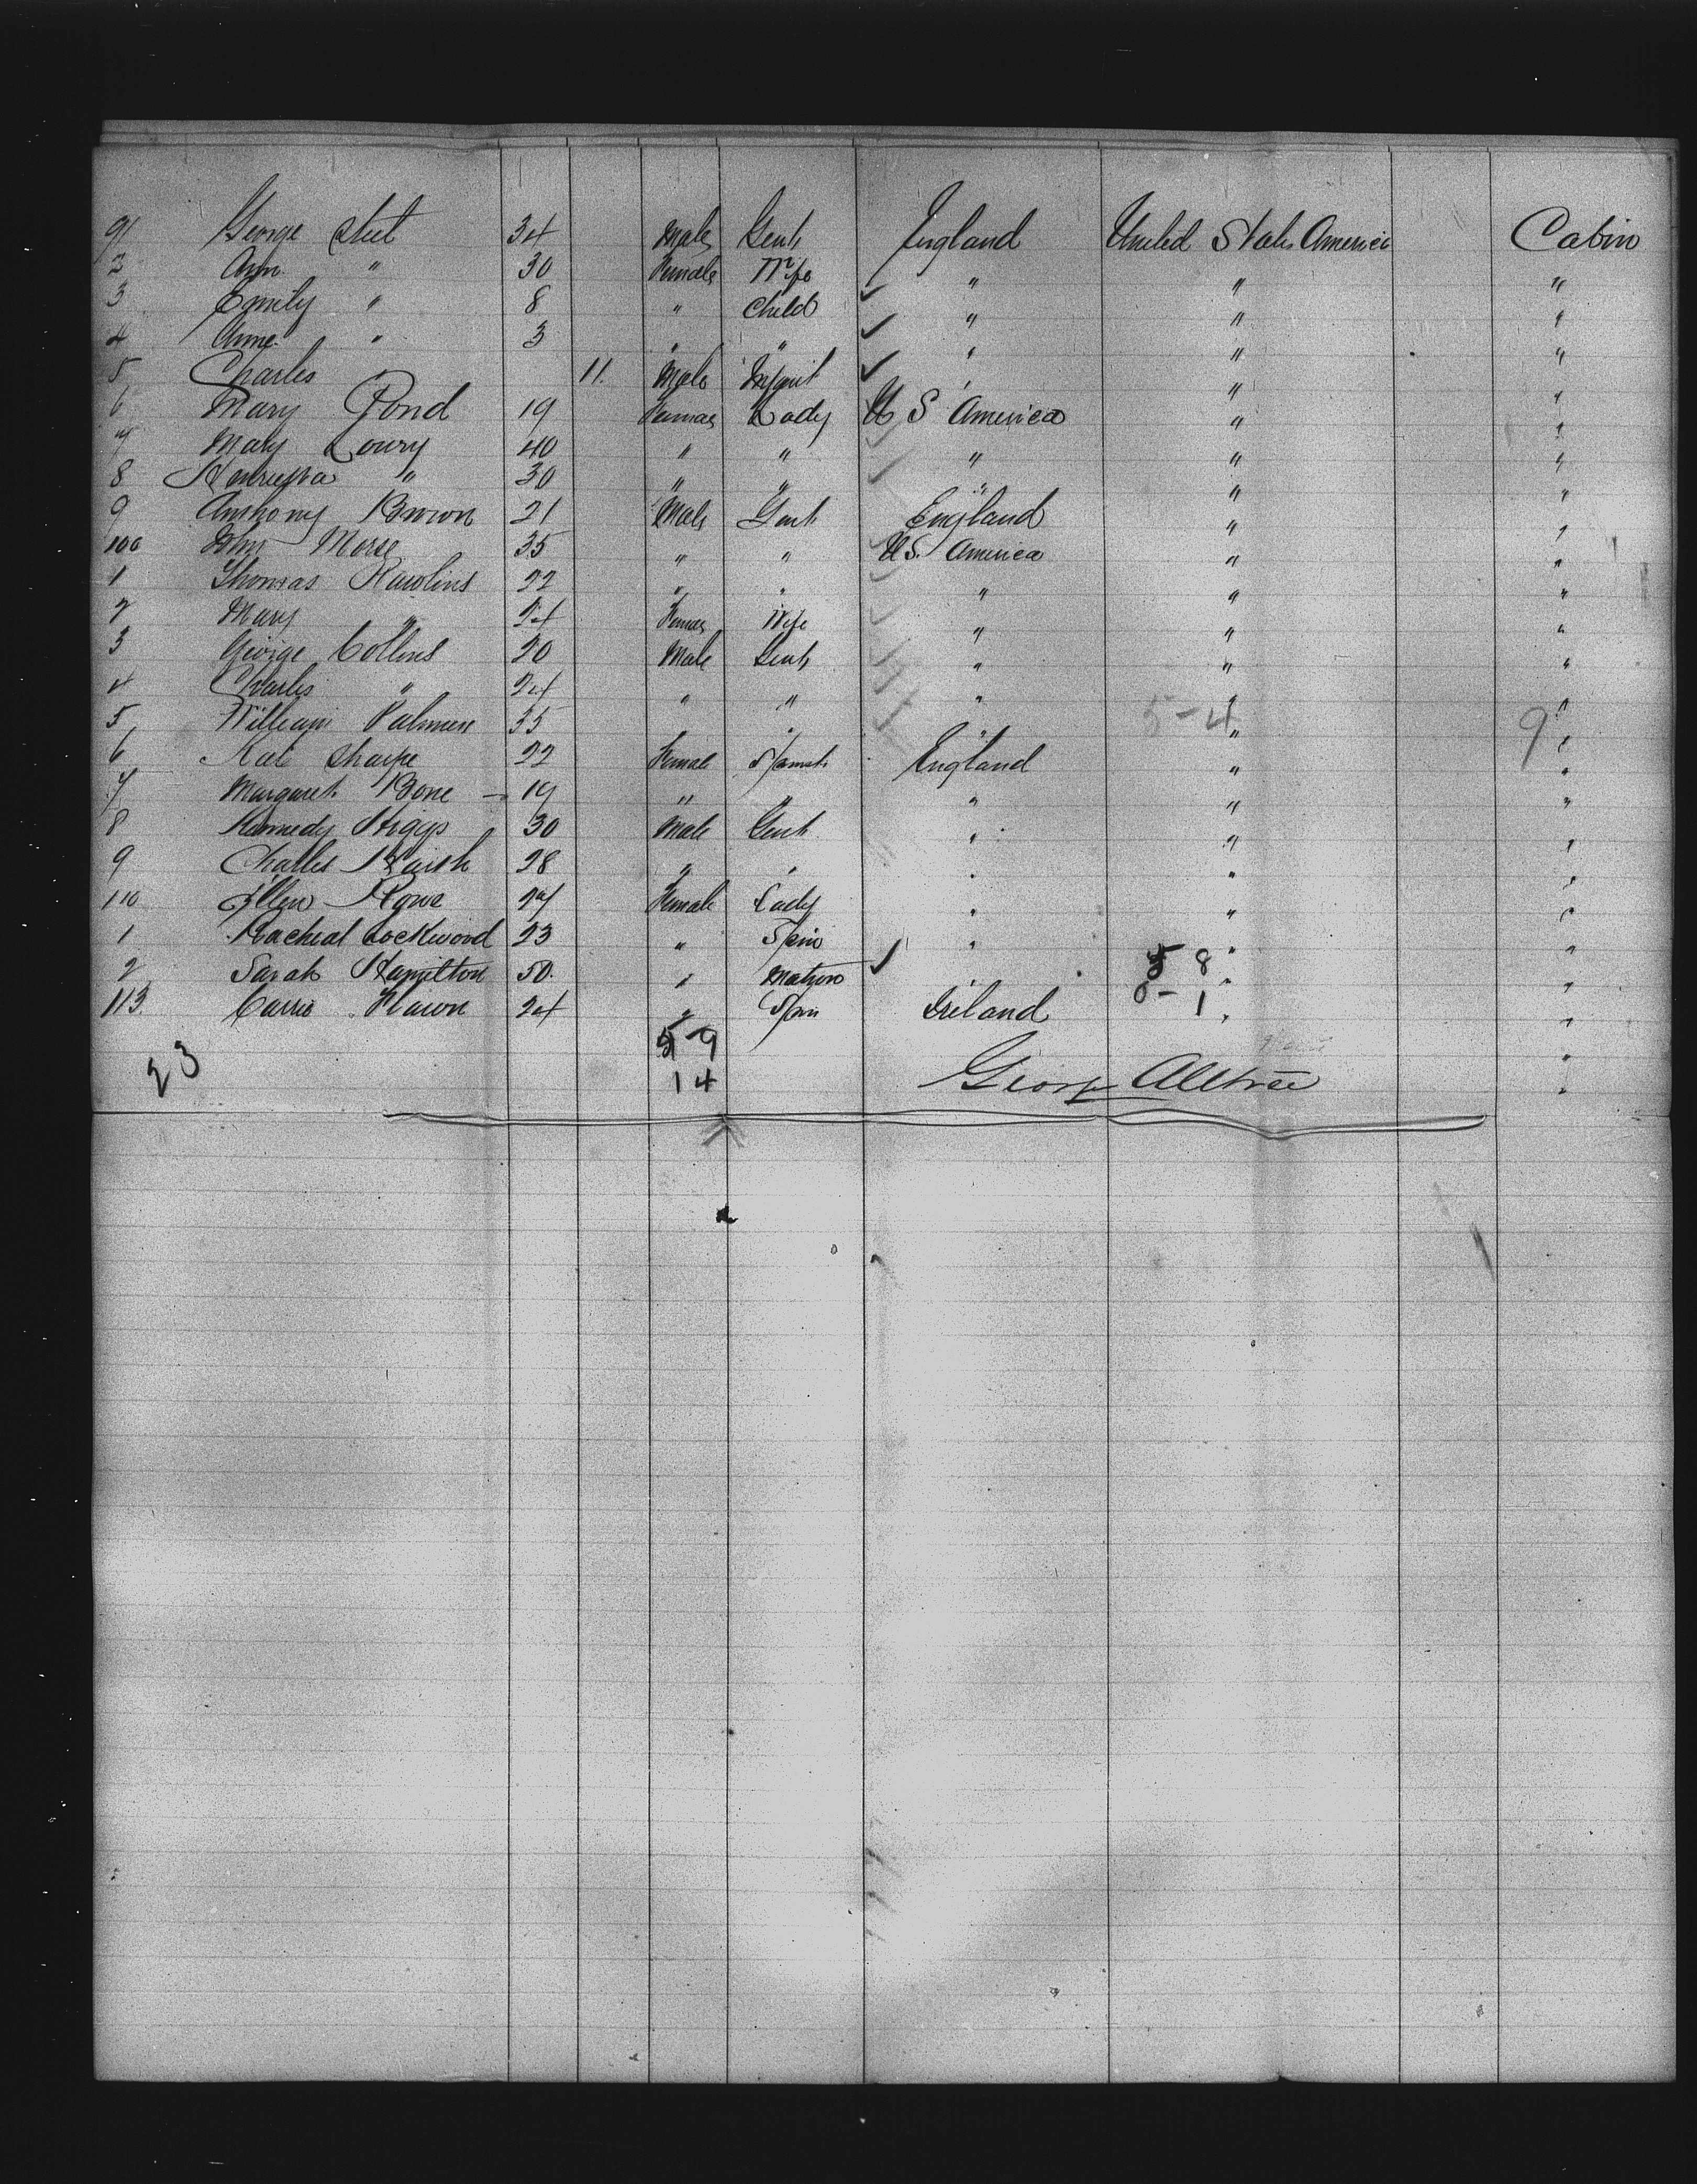 91 George Steel 34 Male Gent England United States America Cabin
2 Ann " 30 Female Wife " " "
3 Emily " 8 " Child " " "
4 Anne " 3 " " " " "
5 Charles " 11. Male Infant " " "
6 Mary Pond 19 Female Lady U S America " "
7 Mary Loury 40 " " " " "
8 Henrietta " 30 " " " " "
9 Anthony Brown 21 Male Gent England " "
100 John Morse 35 " " U S. America " "
1 Thomas Rawlins 22 " " " " "
2 Mary " 24 Female Wife " " "
3 George Collins 20 Male Gent " " "
4 Charles " 24 " " " " "
5 William Palmer 35 " " " 5-4 " 9 "
6 Kate Sharpe 22 Female England " "
7 Margaret Bone 19 " " " " "
8 Kennedy Higgs 30 Male Gent " " "
9 Charles 28 " " " " "
110 Ellen Rowe 24 Female Lady " " "
1 Racheal Lockwood 23 " Spin " " "
2 Sarah Hamilton 50. " Matron " 5 8 " "
113. Carrie 24 " Spin Ireland 0-1 " "
23 5 9
14 George Alltree